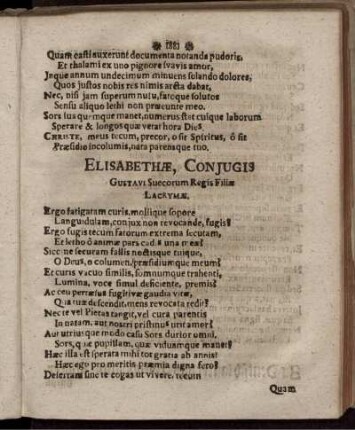 Quam casti auxerunt documenta notanda pudoris,
Et thalami ex uno pignore suavis amor,
Jeque annum undecimum minuens solando dolores,
Quos justos nobis res nimis arcta dabat,
Nec, nisi jam superum nutu, fatoque solutos
Sensu aliquo lethi non præeunte meo.
Sors sua quemque manet, numerus stat cuique laborum
Sperare & longos quæ vetat hora Dies.
CHRISTE, meus tecum, precor, o sit Spiritus, ô sit
Præsidio incolumis, nata parensque tuo.
ELISABETHÆ, CONJUGIS
GUSTAVI Suecorum Regis Filiæ
LACRYMÆ.
Ergo fatigatam curis, mollique sopore
Languidulam, conjux non revocande, fugis?
Ergo fugis tecum fatorum extrema secutam,
Et letho ô animæ pars una meæ?
Siccine securam fallis noctisque tuique,
O Deus, o columen, præsidiumque meum?
Et curis vacuo similis, somnumque trahenti,
Lumina, voce simul deficiente, premis?
Ac ceu fugitivæ gaudia vitæ,
Qua tuæ descendit, mens revocata redit?
Nec te vel Pietas tangit, vel cura parentis
In natam, aut nostri pristinus amer?
Aut utriusque modo casu Sors durior omni,
Sors, quæ pupillam, quæ viduamque manet?
Hæc illa est sperata mihi tot gratia ab annis?
Hæc ego pro meritis præmia digna fero?
Desertam sine te cogas ut vivere, tecum
Quam